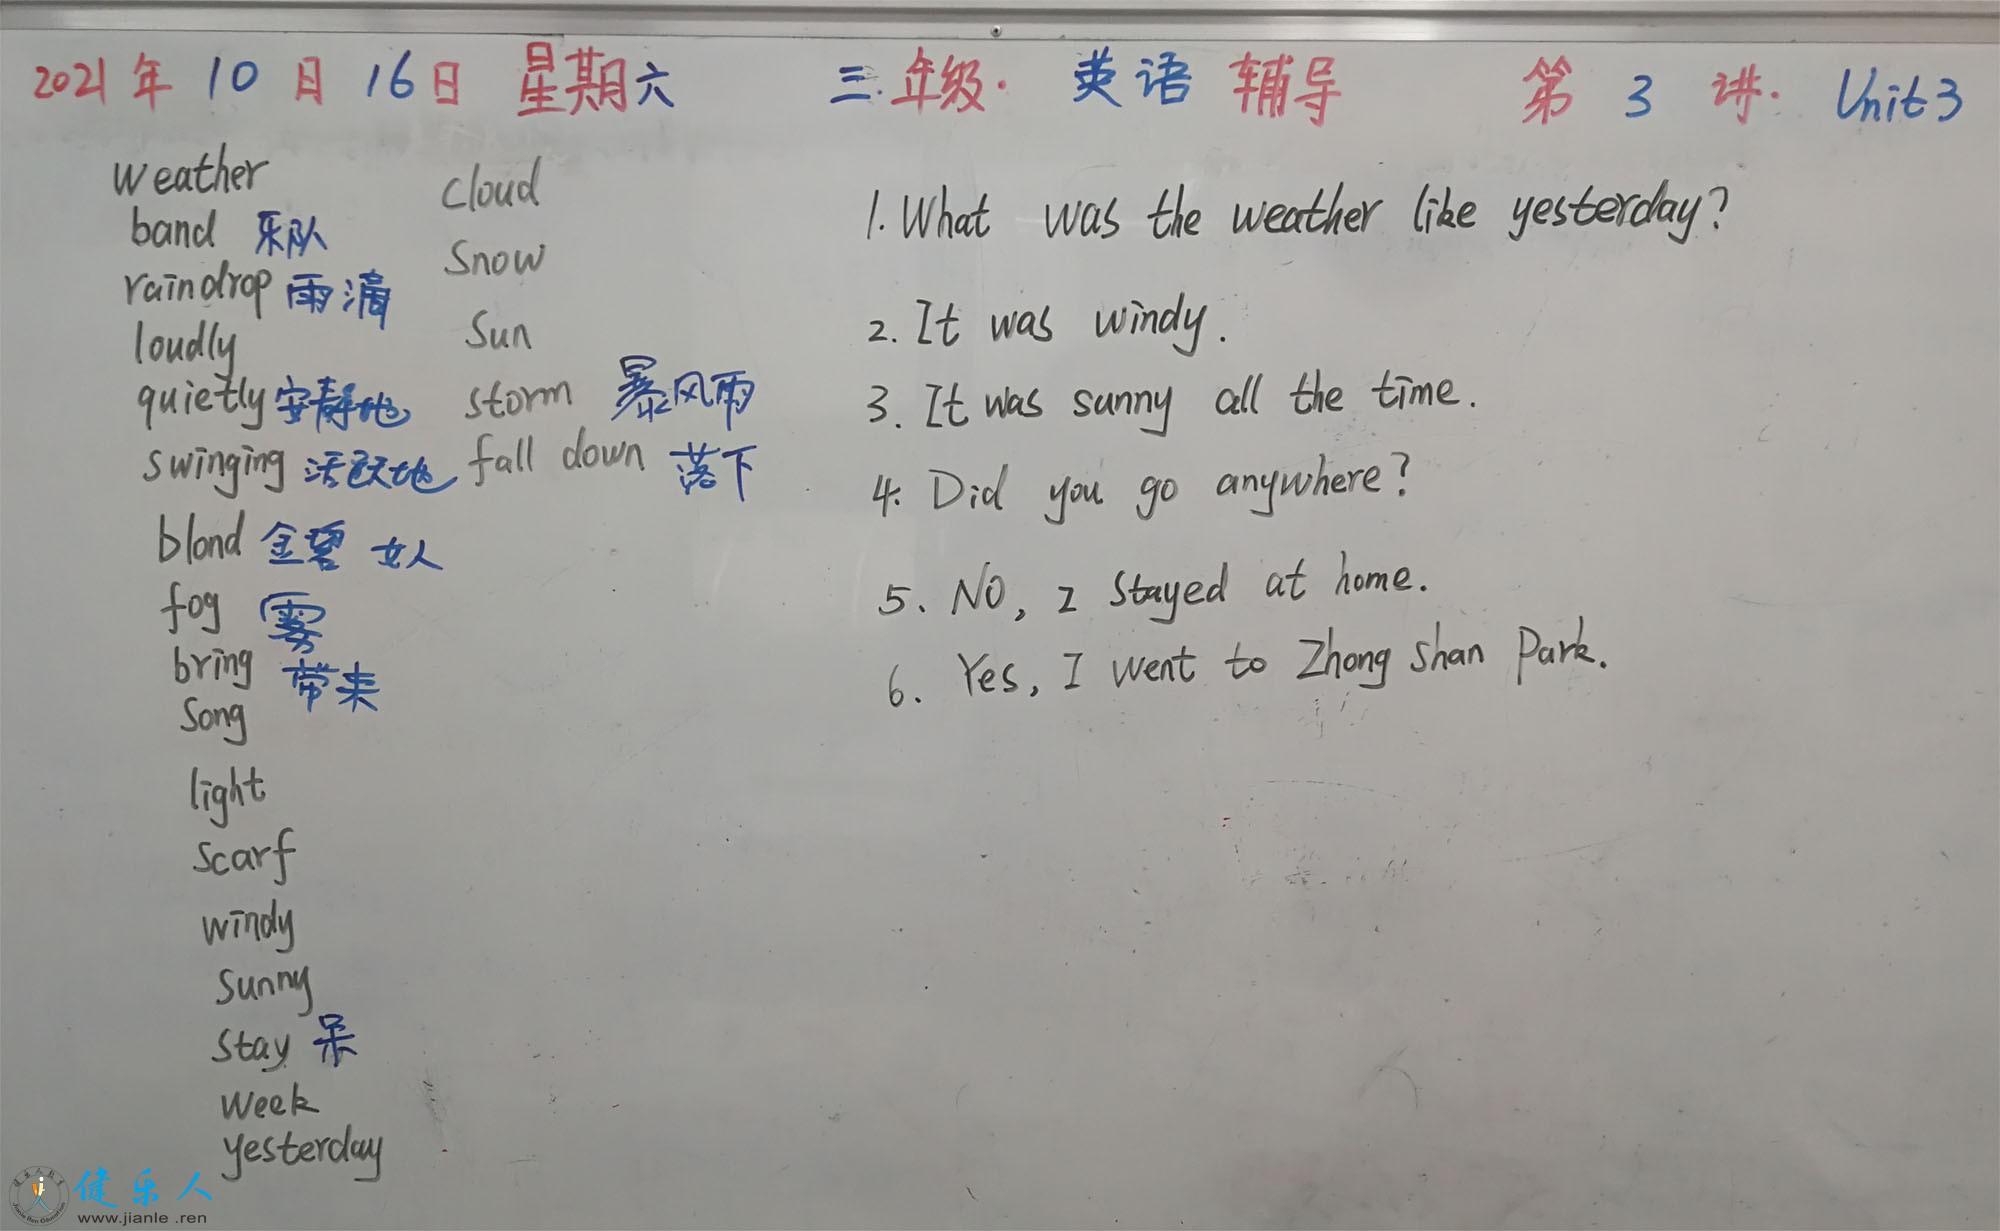 2021年10月16日 星期六 三年级·英语辅导 第3讲·Unit3
weather
band 乐队
raindrop 雨滴
loudly
quietly 安静地
swinging 活跃地
blond 金碧 女人
fog 雾
bring 带来
Song
light
Scarf
windy
Sunny
Stay 呆
week
yesterday
Cloud
Snow
Sun
storm 暴风雨
fall down 落下
1. What was the weather like yesterday?
2. It was windy.
3. It was sunny all the time.
4. Did you go anywhere?
5. NO, I Stayed at home.
6. Yes, I went to Zhong Shan Park.
健乐人
www.jianle .ren